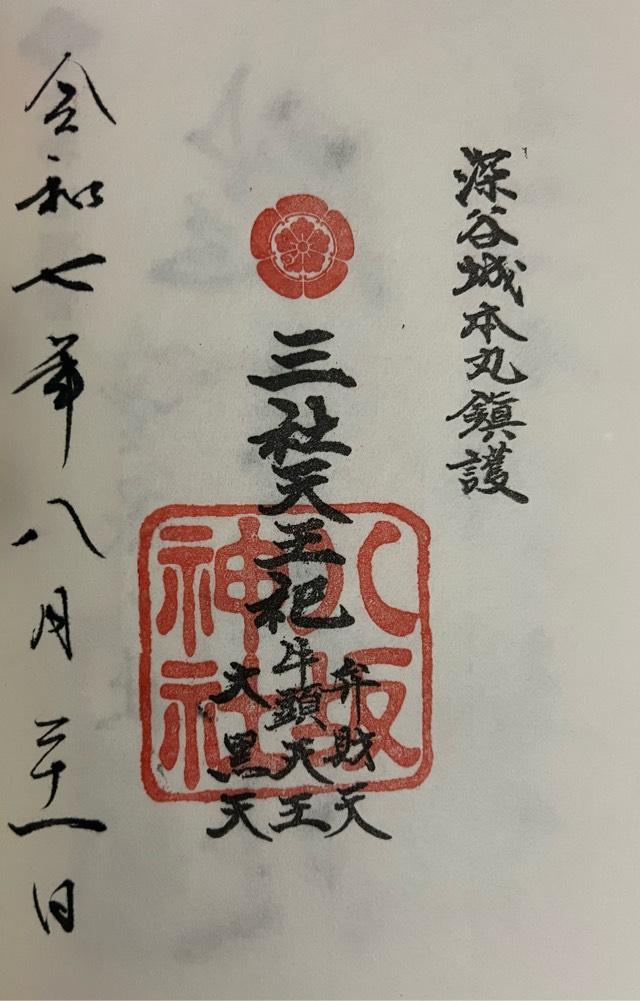 深谷城本丸鎮護
三社天王祀
弁財天
牛頭天王
大黒天
八坂
神社
令和七年八月三十一日